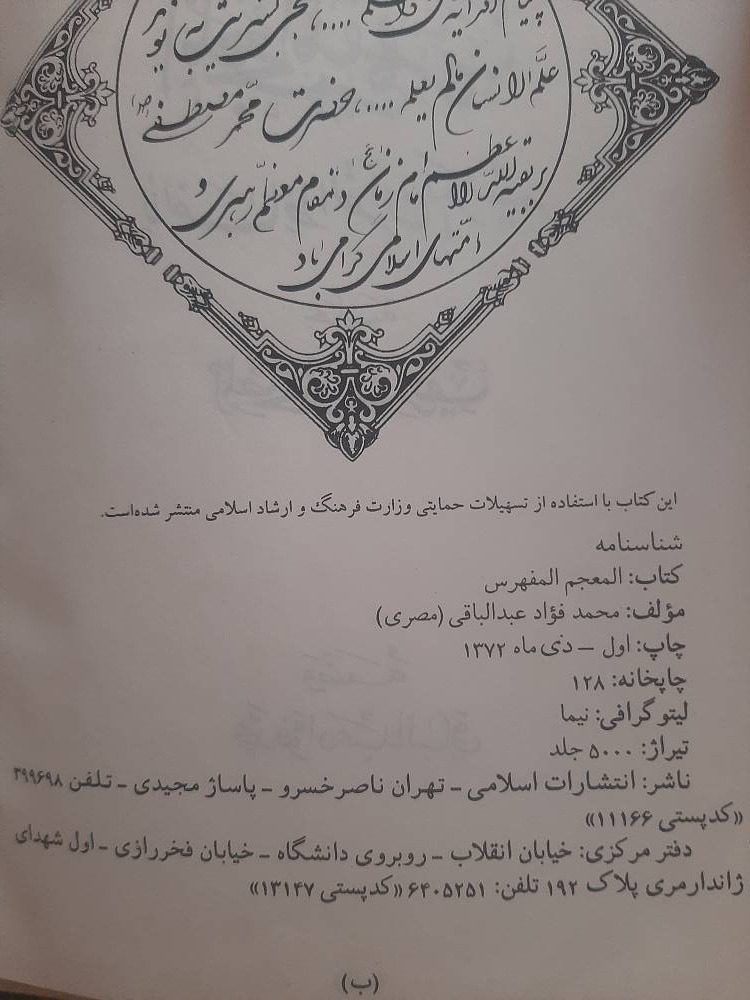 علّم الانسان مالم یعلم ....، حضرت محمّد مصطفی (ص)
بر بقیه اللّه الاعظم امام زمان (عج) و تمام معلّم رهبری و
امّتهای اسلامی گرامی باد
این کتاب با استفاده از تسهیلات حمایتی وزارت فرهنگ و ارشاد اسلامی منتشر شده‌است.
شناسنامه
کتاب: المعجم المفهرس
مؤلف: محمد فؤاد عبدالباقی (مصری)
چاپ: اول – دی ماه ۱۳۷۲
چاپخانه: ۱۲۸
لیتوگرافی: نیما
تیراژ: ۵۰۰۰ جلد
ناشر: انتشارات اسلامی – تهران ناصرخسرو – پاساژ مجیدی – تلفن ۳۹۹۶۹۸
«کدپستی ۱۱۱۶۶»
دفتر مرکزی: خیابان انقلاب – روبروی دانشگاه – خیابان فخررازی – اول شهدای
ژاندارمری پلاک ۱۹۲ تلفن: ۶۴۰۵۲۵۱ «کدپستی ۱۳۱۴۷»
(ب)